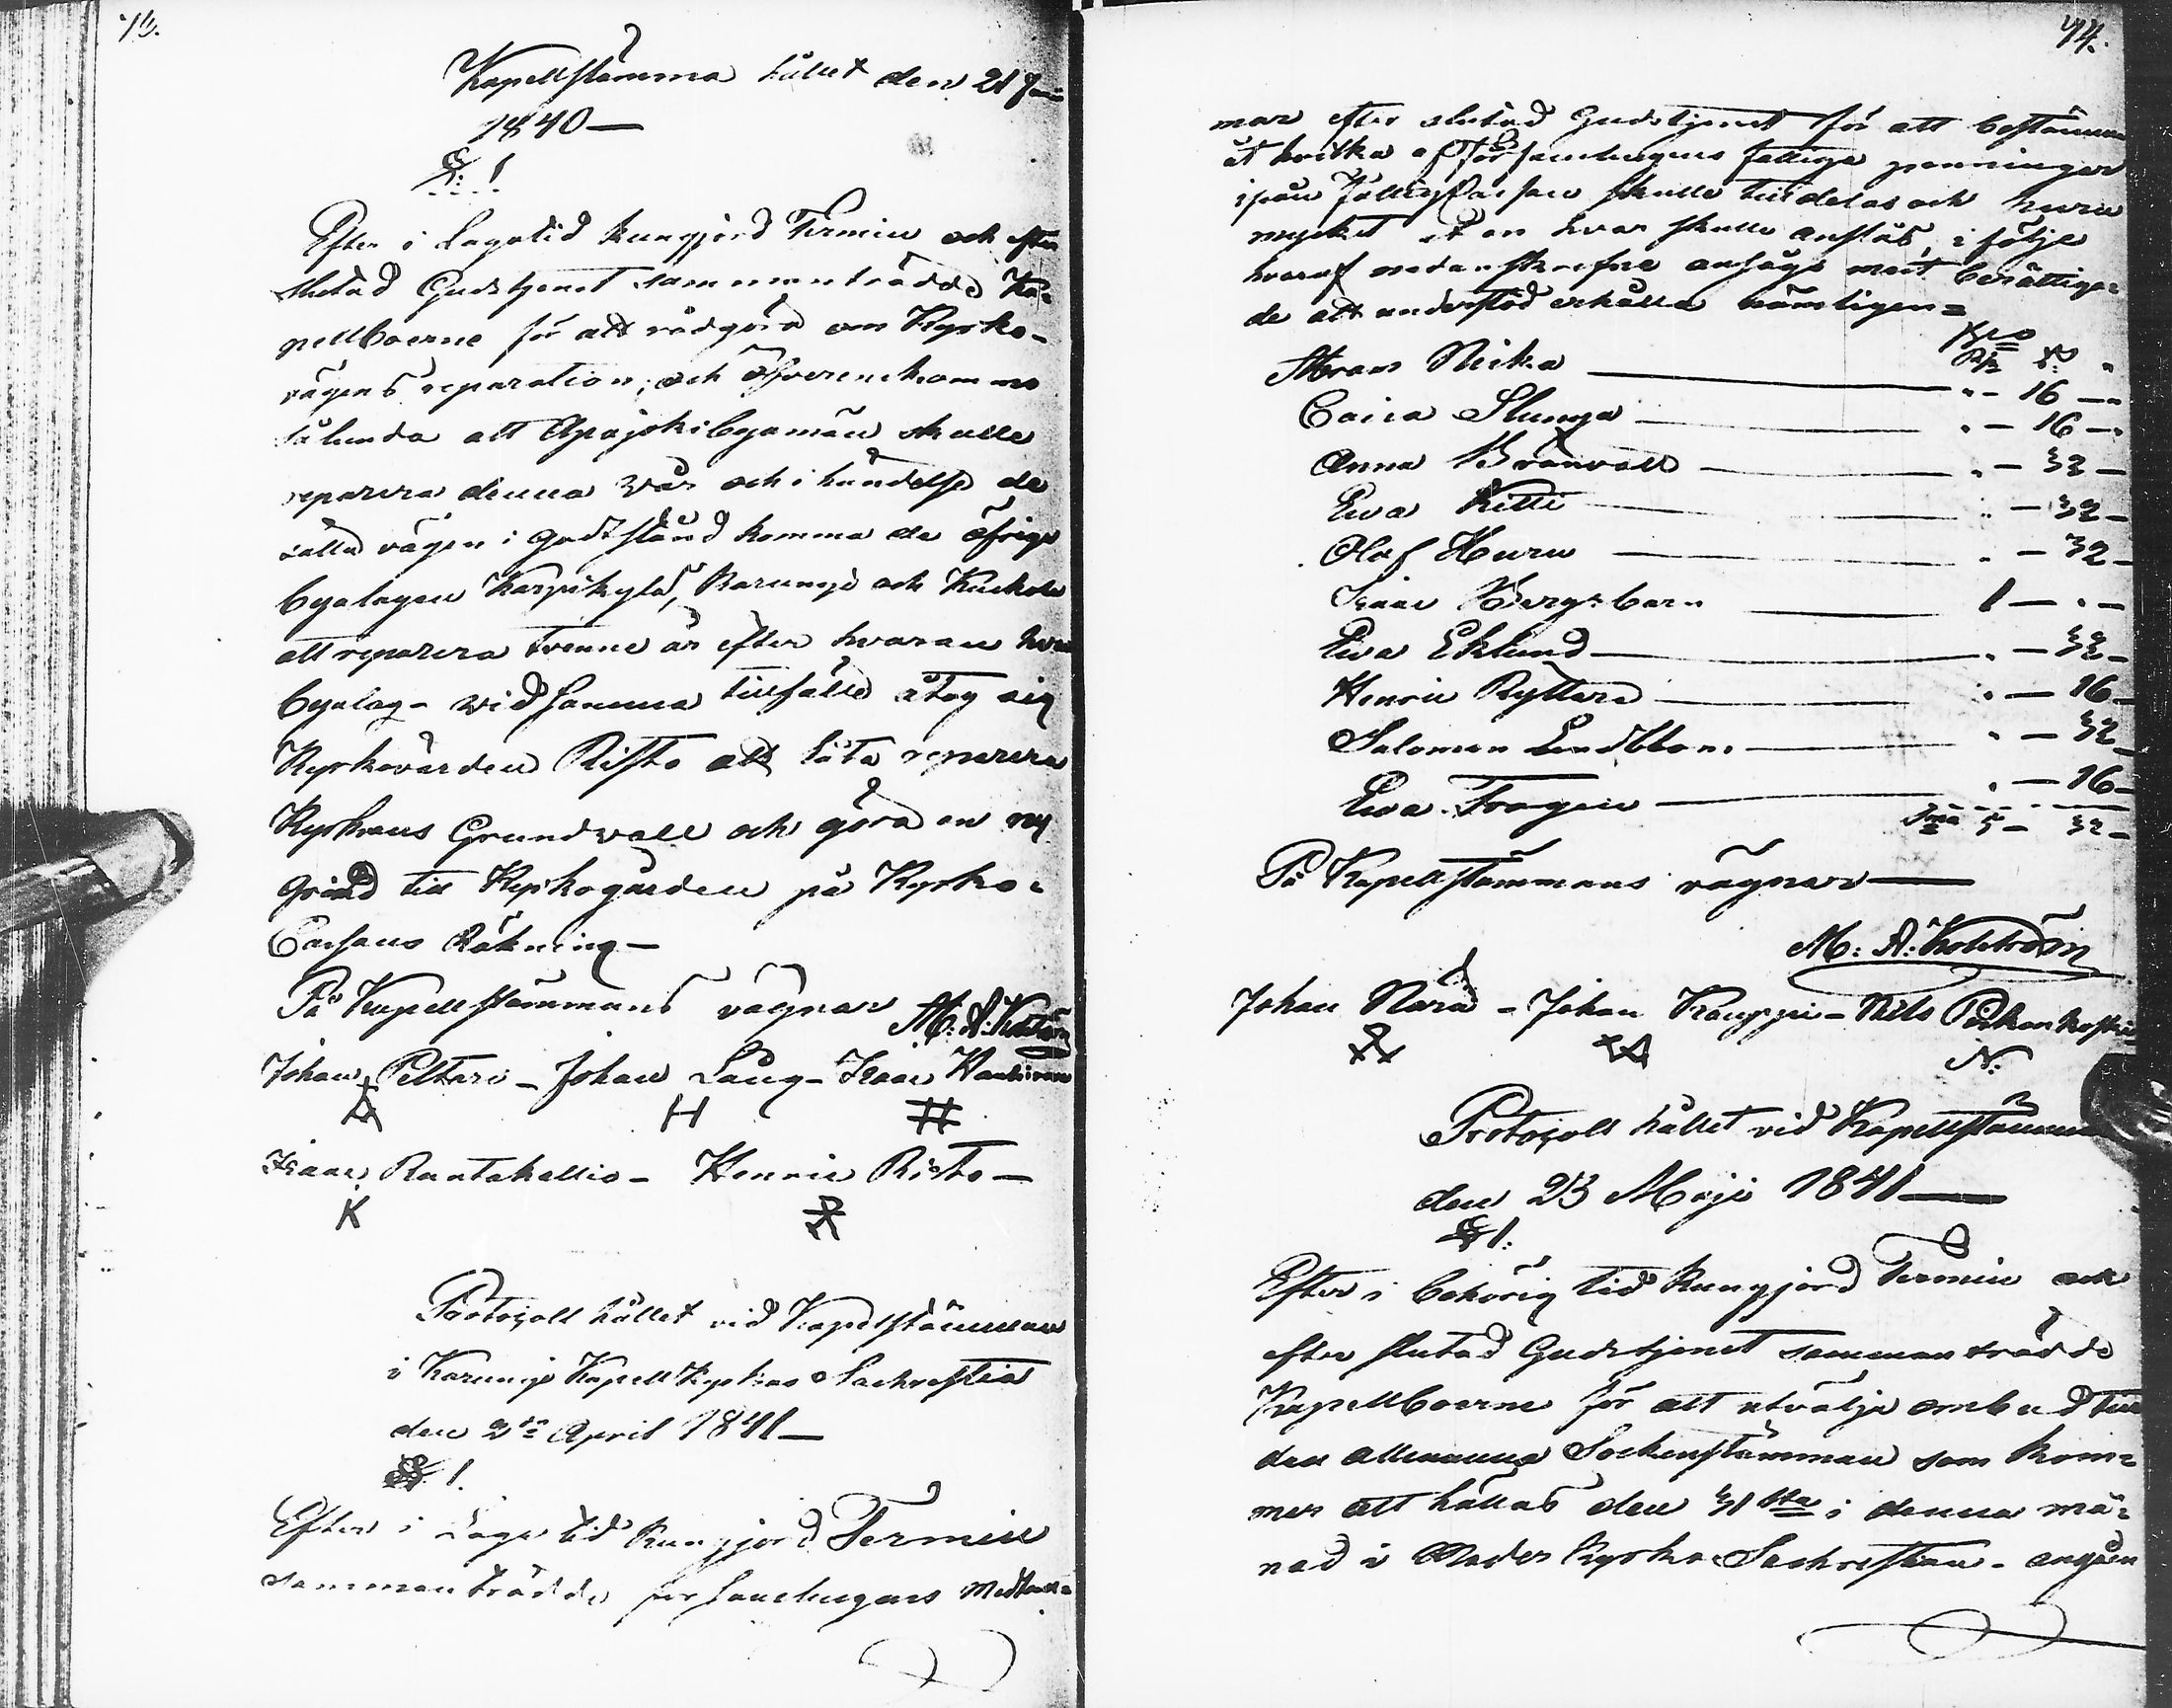 Kapellstämma hållet den 21 Juni
1840 —
§: 1
Efter i Lagatid kungjord Termin och efter
slutad Gudstjenst sammanträdde Ka-
pellboerne för att rådgöra om Kyrko-
vägens reparation, och öfverenskommo
sålunda att Apajokibyamän skulle
reparera denna vår och i händelse de
sätta vägen i godt stånd komma de öfrige
byalagen Karpikylä, Karungi och Kuckola
att reparera trenne år efter hvaran hvar
byalag - vid samma tillfälle åtog sig
Kyrkovärden Risto att låta reparera
Kyrkans Grundvall och göra en ny
Grind till Kyrkogården på Kyrko-
Cassans Räkning —
På Kapellstämmans vägnar M. A. Kolström
Johan Peltari - Johan Lång - Isaac
H #
Isaac Rantakallio - Henric Risto —
K
Protocoll hållet vid Kapellstämman
i Karungi Kapell Kyrkas Sachrestia
den 2dn April 1841 —
§ 1.
Efter i Laga tid kungjord Termin
sammanträdde församlingens Medlem-
74.
mar efter slutad Gudstjenst för att bestämma
åt hvilka af församlingens fattige penningar
ifrån Fattigcassan skulle tilldelas och huru
mycket åt en hvar skulle anslås, i följe
hvaraf nedanskrefne ansågs mest berättiga-
de att understöd erhålla nämligen =
Bco
Rdr s:
Abram Niska — " - 16 —
Caisa Slunga — " - 16 —
Anna Brännvall — " - 32 —
Ewa Kitti — " - 32 —
Olof Huru — " - 32 —
Isaac Bergs barn — 1 — " —
Ewa Eklund — " - 32 —
Henric Ryttare — " - 16 —
Salomon Lindblom — " - 32 —
Ewa Frogen — " - 16 —
Sma 5 - 32 —
På Kapellstämmans vägnar —
M: A: Kolström
Johan Nara - Johan Kauppi - Nils
N:
Protocoll hållet vid Kapellstämman
den 23 Maji 1841 —
§ 1:
Efter i behörig tid kungjord Termin och
efter slutad Gudstjenst sammanträdde
Kapellboerne för att utvälja ombud till
den allmänna Sockenstämman som kom-
mer att hållas den 31sta i denna må-
nad i Moder Kyrko Sachrestian - angåen